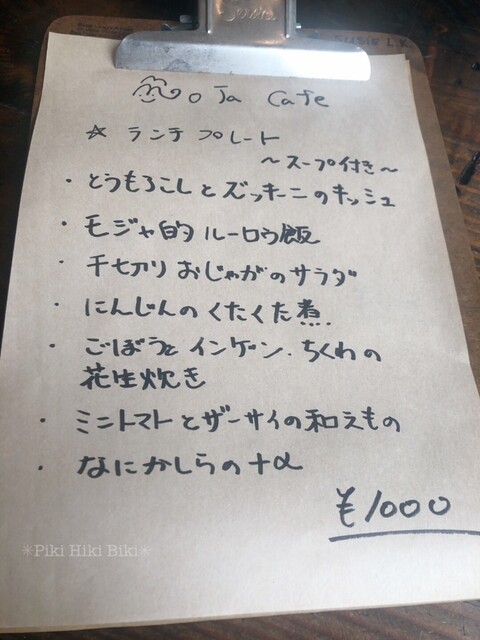 Moja Cafe
☆ ランチプレート
～スープ付き～
・とうもろこしとズッキーニのキッシュ
・モジャ的ルーロウ飯
・千切りおじゃがのサラダ
・にんじんのくたくた煮
・ごぼうとインゲン、ちくわの
花生炊き
・ミニトマトとザーサイの和えもの
・なにかしらの+α
¥1000
✳Piki Hiki Biki✳